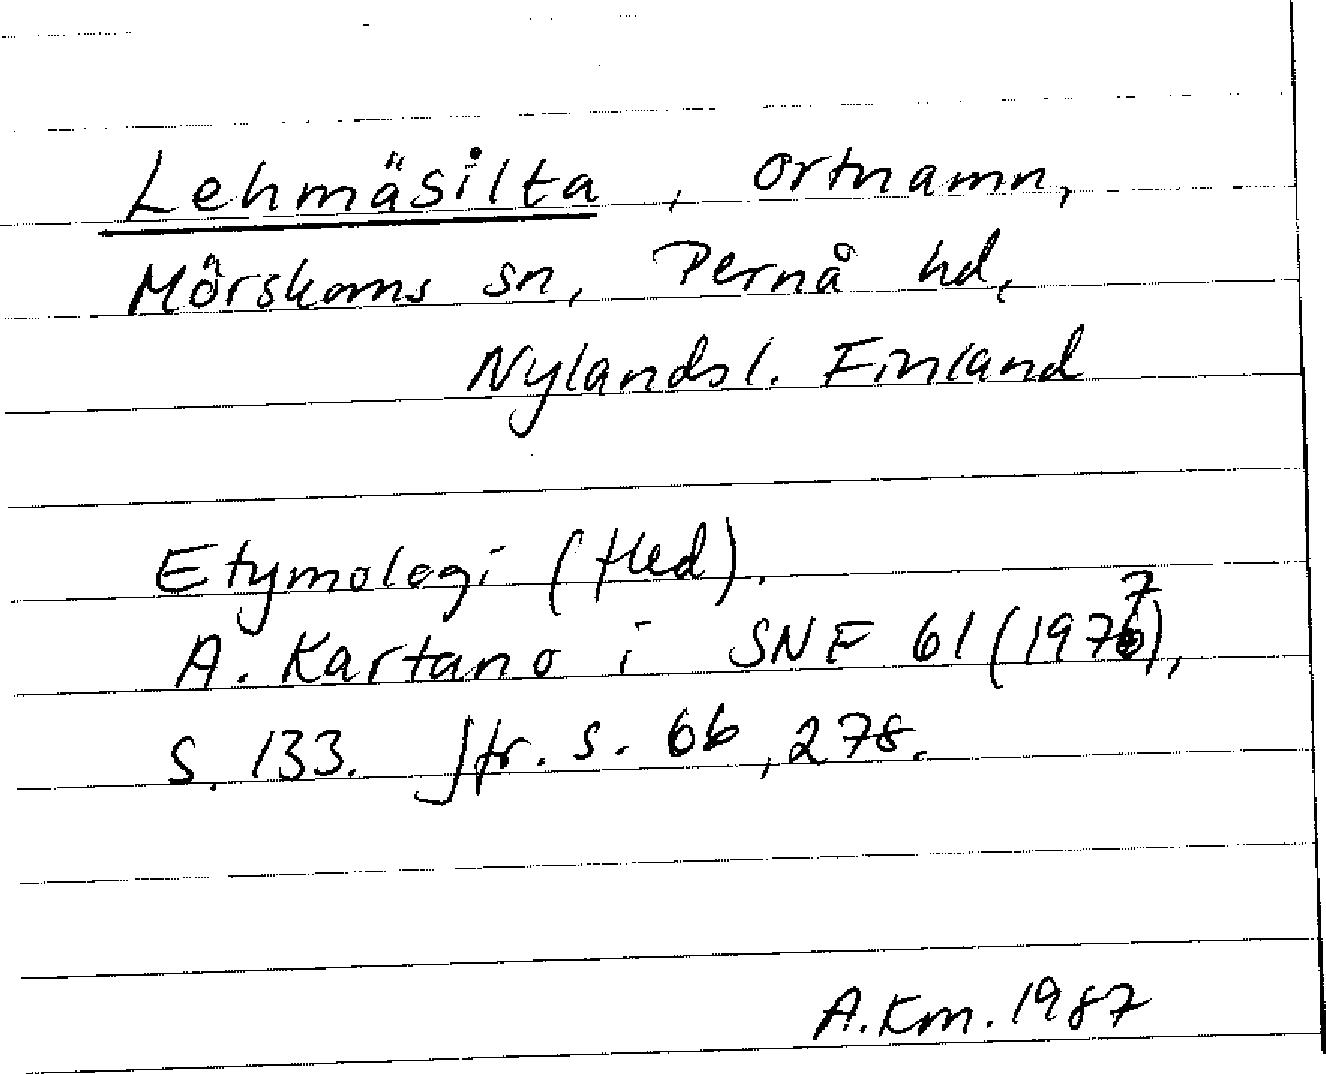 Lehmäsilta, ortnamn,
Mörskoms sn, Pernå hd,
Nylandsl. Finland
Etymologi (fled).
A. Kartano i SNF 61 (1977),
S. 133. Jfr. s. 66, 278.
A.Km. 1987